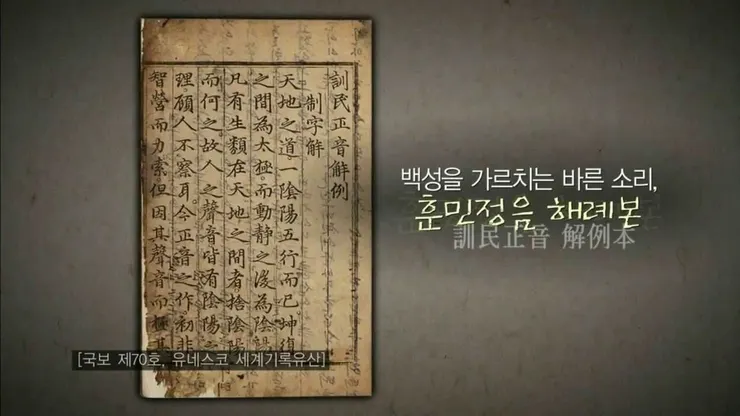 訓民正音解例
制字解
天地之道。一陰陽五行而已。坤復
之間為太極。而動靜之後為陰陽
凡有生類在天地之間者。捨陰陽
而何之。故人之聲音。皆有陰陽之
理。顧人不察耳。今正音之作。初非
智營而力索。但因其聲音而極其
백성을 가르치는 바른 소리,
훈민정음 해례본
訓民正音 解例本
[국보 제70호, 유네스코 세계기록유산]